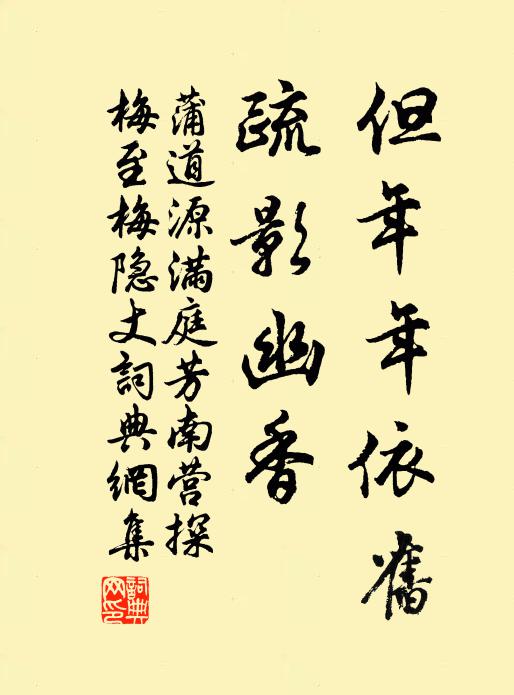 但年年依舊
疏影幽香
蒲道源滿庭芳南营探
梅至梅隐丈詞典網集
詞典网印